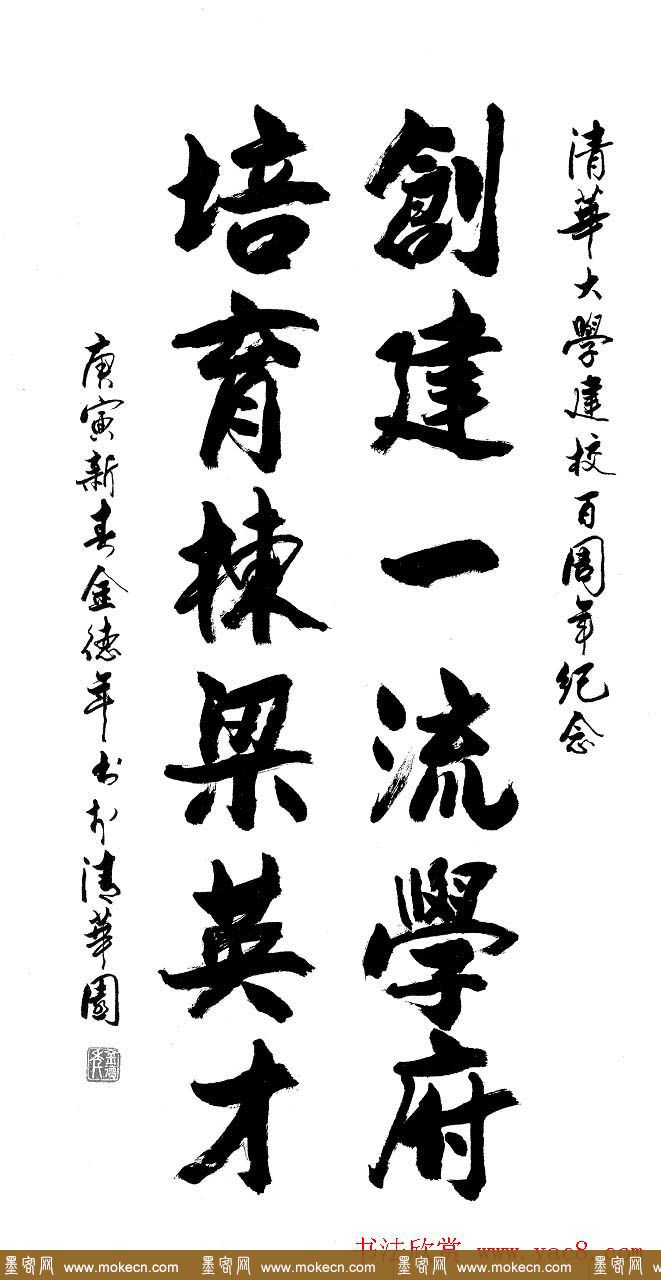 清華大學建校百周年纪念
創建一流學府
培育棟梁英才
庚寅新春金德年书於清華園
书法欣赏 www.yac8.com
墨客网 www.mokecn.com 墨客网 www.mokecn.com 墨客网 www.mokecn.com 墨客网 www